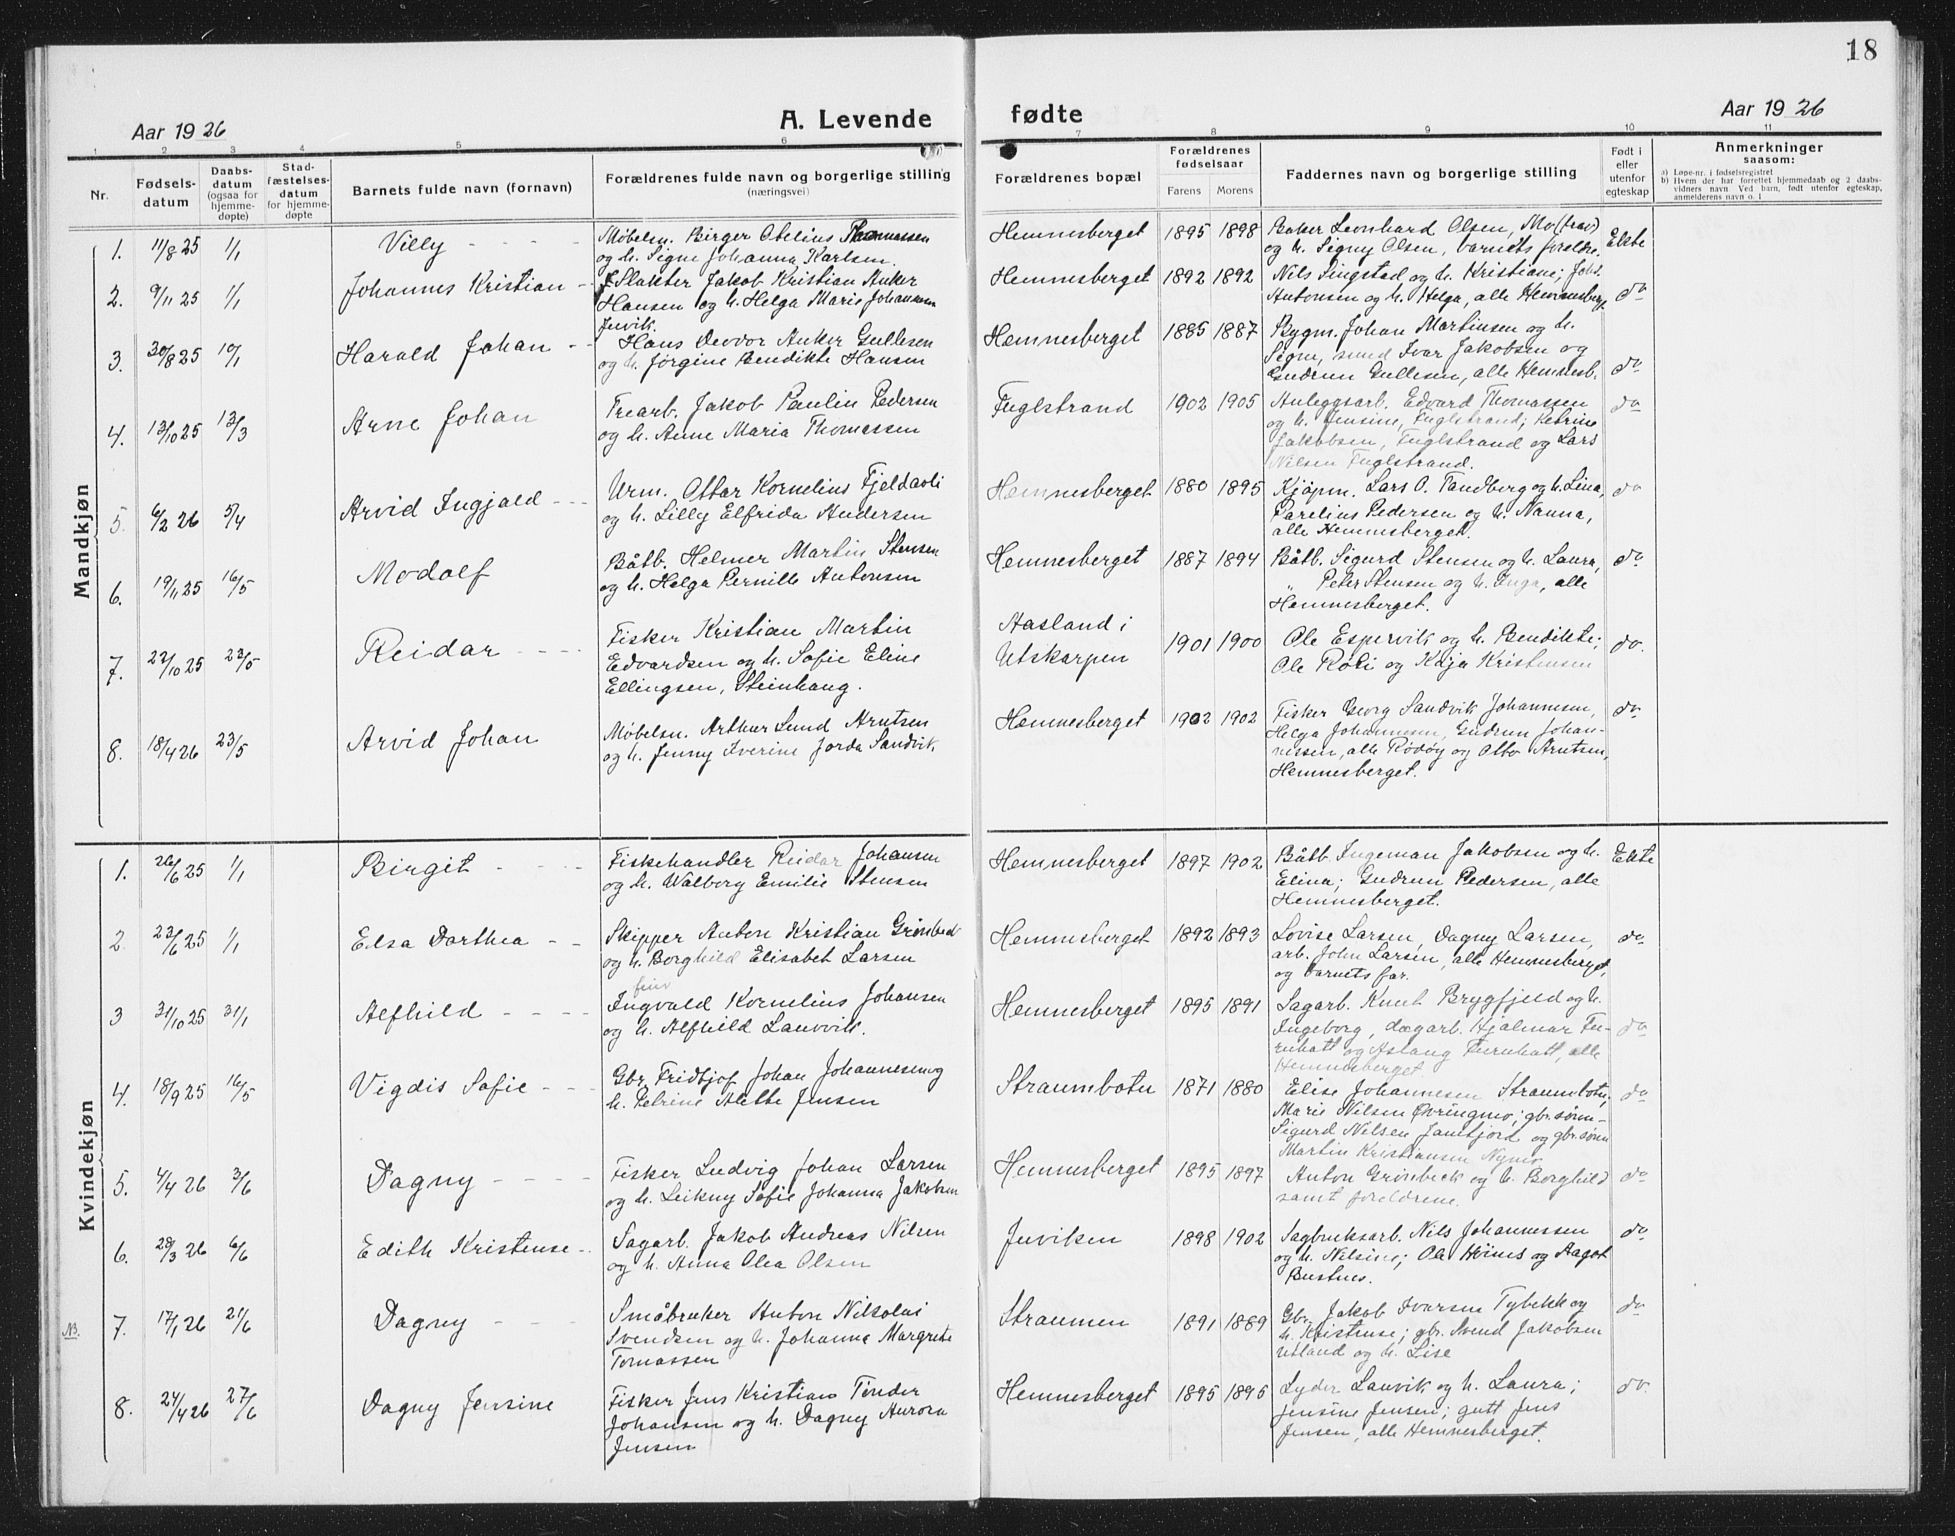 18
Aar 1926
A. Levende
fødte
Aar 1926
1 2 3 4 5 6 7 8 9 10 11
Nr.
Fødsels-
datum
Daabs-
datum
(ogsaa for
hjemme-
døpte)
Stad-
fæstelses-
datum
for hjemme-
døpte
Barnets fulde navn (fornavn)
Forældrenes fulde navn og borgerlige stilling
(næringsvei)
Forældrenes bopæl
Forældrenes
fødselsaar
Farens Morens
Faddernes navn og borgerlige stilling
Født i
eller
utenfor
egteskap
Anmerkninger
saasom:
a) Løpe-nr. i fødselsregistret
b) Hvem der har forrettet hjemmedaab og 2 daabs-
vidners navn. Ved barn, født utenfor egteskap,
anmelderens navn o. l.
Mandkjøn
1. 11/8 25 1/1 Villy
Møbelsn. Birger Otelius Thomassen
og h. Signe Johanna Karlsen.
Hemnesberget 1895 1898
Baker Leonhard Olsen, Mo (frav)
og h. Signy Olsen, barnets foreldre.
Ekte
2. 9/11 25 1/1 Johannes Kristian
Slakter Jakob Kristian Anker
Hansen og h. Helga Marie Johansen
Juvik.
Hemnesberget 1892 1892
Nils Singstad og h. Kristiane; Johs.
Antonsen og h. Helga, alle Hemnesberg.
do
3. 30/8 25 10/1 Harald Johan
Hans Devor Anker Gullesen
og h. Jørgine Bendikte Hansen
Hemnesberget 1885 1887
Bygm. Johan Martinsen og h.
Signe, smed Ivar Jakobsen og
Gudrun Gullesen, alle Hemnesb.
do
4. 13/10 25 13/3 Arne Johan
Trearb. Jakob Paulin Pedersen
og h. Anne Maria Thomassen
Fuglstrand 1902 1905
Anleggsarb. Edvard Thomassen
og h. Jensine, Fuglstrand; Petrine
Jakobsen, Fuglstrand og Lars
Nilsen Fuglstrand.
do
5. 6/2 26 5/4 Arvid Ingjald
Urm. Ottar Kornelius Fjeldavli
og h. Lilly Elfrida Andersen
Hemnesberget 1880 1895
Kjøpm. Lars O. Tandberg og h. Lina,
Parelius Pedersen og h. Nanna,
alle Hemnesberget.
do
6. 19/11 25 16/5 Modolf
Båtb. Helmer Martin Stensen
og h. Helga Pernille Antonsen
Hemnesberget 1887 1894
Båtb. Sigurd Stensen og h. Laura,
" Peter Stensen og h. Inga, alle
Hemnesberget.
do
7. 22/10 25 22/5 Reidar
Fisker Kristian Martin
Edvardsen og h. Sofie Eline
Ellingsen, Steinhaug.
Aasland i
Utskarpen
1901 1900
Ole Espervik og h. Bendikte;
Ole Røli og Kaja Kristensen
do.
8. 18/4 26 23/5 Arvid Johan
Møbelsn. Arthur Sund Arntsen
og h. Jenny Iverine Jorda Sandvik
Hemnesberget 1902 1902
Fisker Georg Sandvik Johannesen,
Helga Johannesen, Gudrun Johan-
nessen, alle Rødøy og Otto Arntsen,
Hemnesberget.
do
Kvindekjøn
1. 26/6 25 1/1 Birgit
Fiskehandler Reidar Johansen
og h. Walborg Emilie Stensen
Hemnesberget 1897 1902
Båtb. Ingeman Jakobsen og h.
Elina; Gudrun Pedersen, alle
Hemnesberget.
Ekte
2. 23/6 25 1/1 Elsa Dorthea
Skipper Anton Kristian Grønbech
og h. Borghild Elisabet Larsen
Hemnesberget 1892 1893
Lovise Larsen, Dagny Larsen,
arb. John Larsen, alle Hemnesberget,
og barnets far.
do
3 31/10 25 31/1 Alfhild
Ingvald Kornelius Johansen
og h. Alfhild Lauvvik.
Hemnesberget 1895 1891
Sagarb. Knut Brygfjeld og h.
Ingeborg, dagarb. Hjalmar Fu-
ruhatt og Aslaug Furuhatt, alle
Hemnesberget
do
4. 18/9 25 16/5 Vigdis Sofie
Gbr. Fridtjof Johan Johannesen og
h. Petrine Alette Jensen
Straumbotn 1871 1880
Elise Johannesen Straumbotn,
Marie Nilsen Øvringmo; gbr.sønn
Sigurd Nilsen Jamtjord og gbr.sønn
Martin Kristiansen Nymo
do
5. 4/4 26 3/6 Dagny
Fisker Ludvig Johan Larsen
og h. Leikny Sofie Johanna Jakobsen
Hemnesberget 1895 1897
Anton Grønbeck og h. Borghild
samt foreldrene.
do
6. 28/3 26 6/6 Edith Kristense
Sagarb. Jakob Andreas Nilsen
og h. Anna Olea Olsen
Juviken 1898 1902
Sagbruksarb. Nils Johannessen
og h. Nilsine; Ole Høines og Aagot
Bustnes.
do
NB. 7. 17/1 26 21/6 Dagny
Småbruker Anton Nikolai
Svendsen og h. Johanna Margrete
Tomassen
Straumen 1891 1889
Gbr. Jakob Ivarsen Tybekk og
h. Kristense; gbr. Svend Jakobsen
Utland og h. Lise
do
8. 24/4 26 27/6 Dagny Jensine
Fisker Jens Kristian Tønder
Johansen og h. Dagny Aurora
Jensen
Hemnesberget 1895 1895
Lyder Lauvik og h. Laura;
Jensine Jensen; gutt Jens
Jensen, alle Hemnesberget.
do.